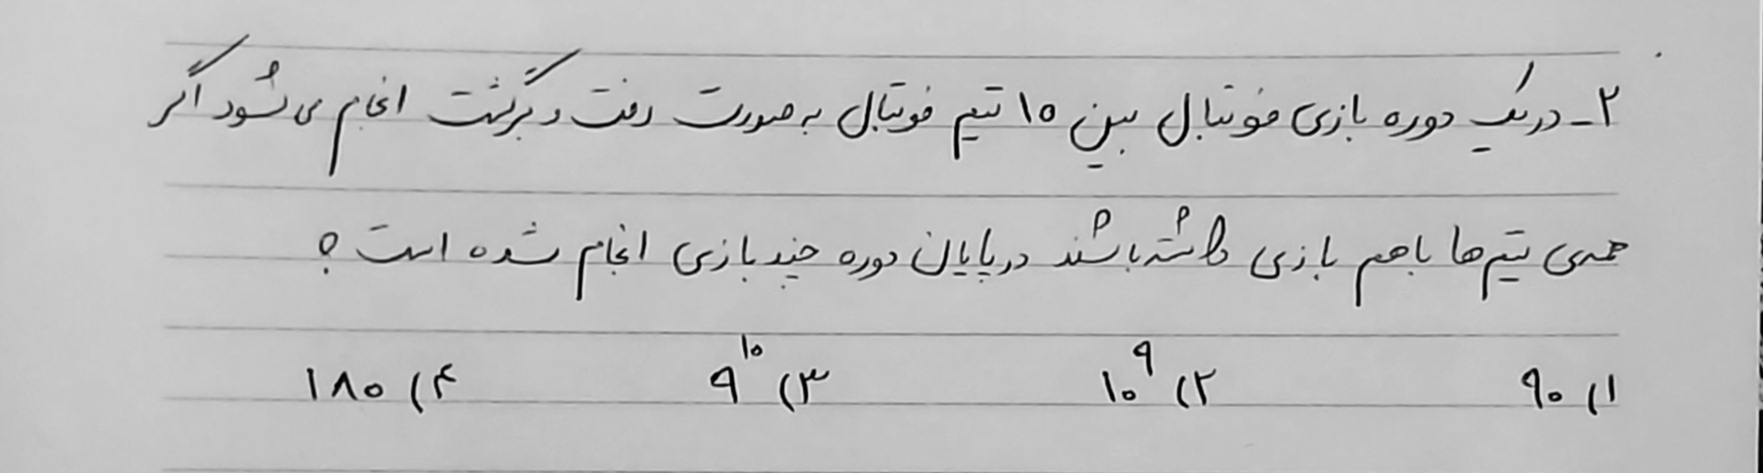 ۲- در یک دوره بازی فوتبال بین ۱۰ تیم فوتبال به صورت رفت و برگشت انجام می شود اگر
همه‌ی تیم‌ها با هم بازی داشته باشند در پایان دوره چند بازی انجام شده است ؟
۱) ۹۰ ۲) ۱۰^۹ ۳) ۹^۱۰ ۴) ۱۸۰